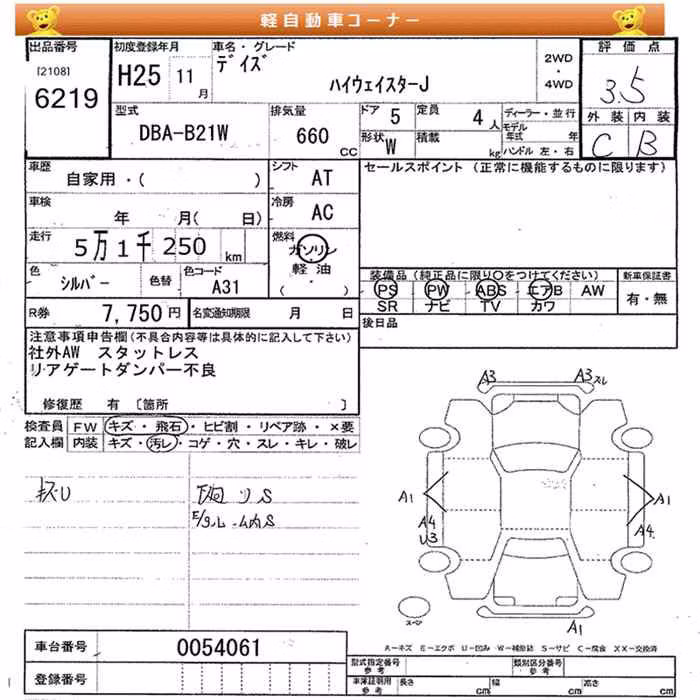 軽自動車コーナー
出品番号
[2108]
6219
初度登録年月
H25 11 月
車名・グレード
デイズ
ハイウェイスターJ
2WD
・
4WD
評価点
3.5
外装 内装
C B
型式
DBA-B21W
排気量
660 CC
ドア 5
定員 4 人
形状 W
積載 kg
ディーラー・並行
モデル年式 年
ハンドル 左・右
車歴
自家用・( )
シフト AT
セールスポイント (正常に機能するものに限ります)
車検
年 月( 日)
冷房 AC
走行
5万1千250 km
燃料
ガソリン
軽油
( )
色 シルバー 色替
色コード A31
装備品 (純正品に限り○をつけてください)
新車保証書
PS PW ABS エアB AW
有・無
SR ナビ TV カワ
R券 7,750円
名変通知期限 月 日
後日品
注意事項申告欄 (不具合内容等は具体的に記入して下さい)
社外AW スタットレス
リアゲートダンパー不良
修復歴 有 〔箇所 〕
検査員 FW キズ・飛石・ヒビ割・リペア跡・×要
記入欄 内装 キズ・汚レ・コゲ・穴・スレ・キレ・破レ
キズU
下回りS
A3
A3スレ
A1
A1
A4
U3
A4
A1
スペア
A-キズ E-エクボ U-凹み W-補修跡 S-サビ C-腐食 XX-交換済
車台番号 0054061
登録番号
型式指定番号 参考
類別区分番号 参考
車庫証明用 参考
長さ cm 幅 cm 高さ cm